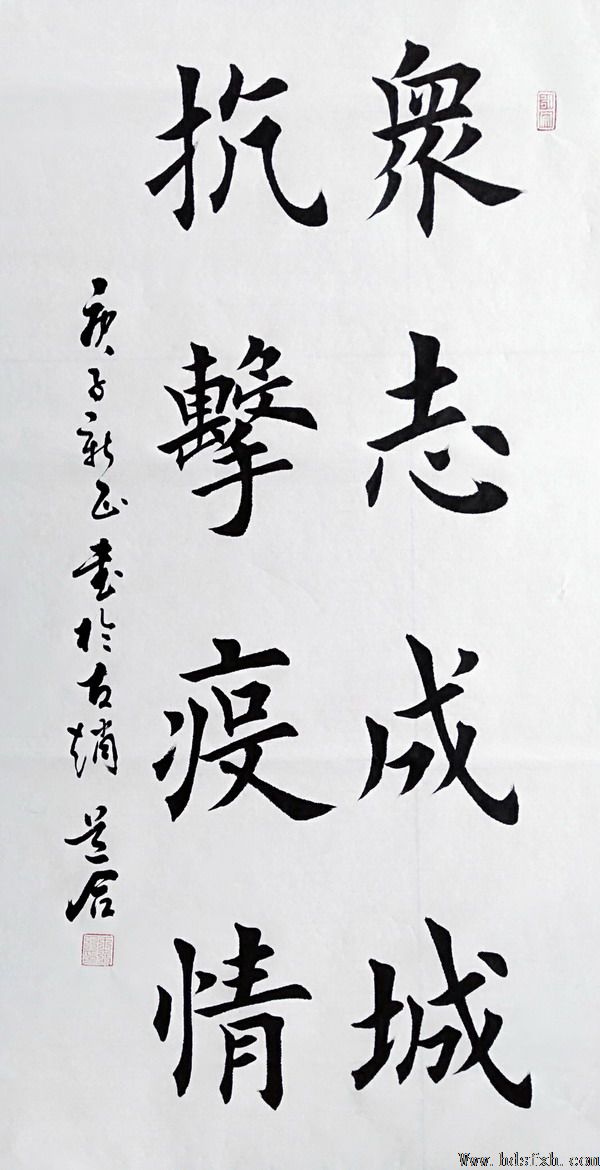 衆志成城
抗擊疫情
庚子新正書於古趙 道合
Www.hdsfxh.com